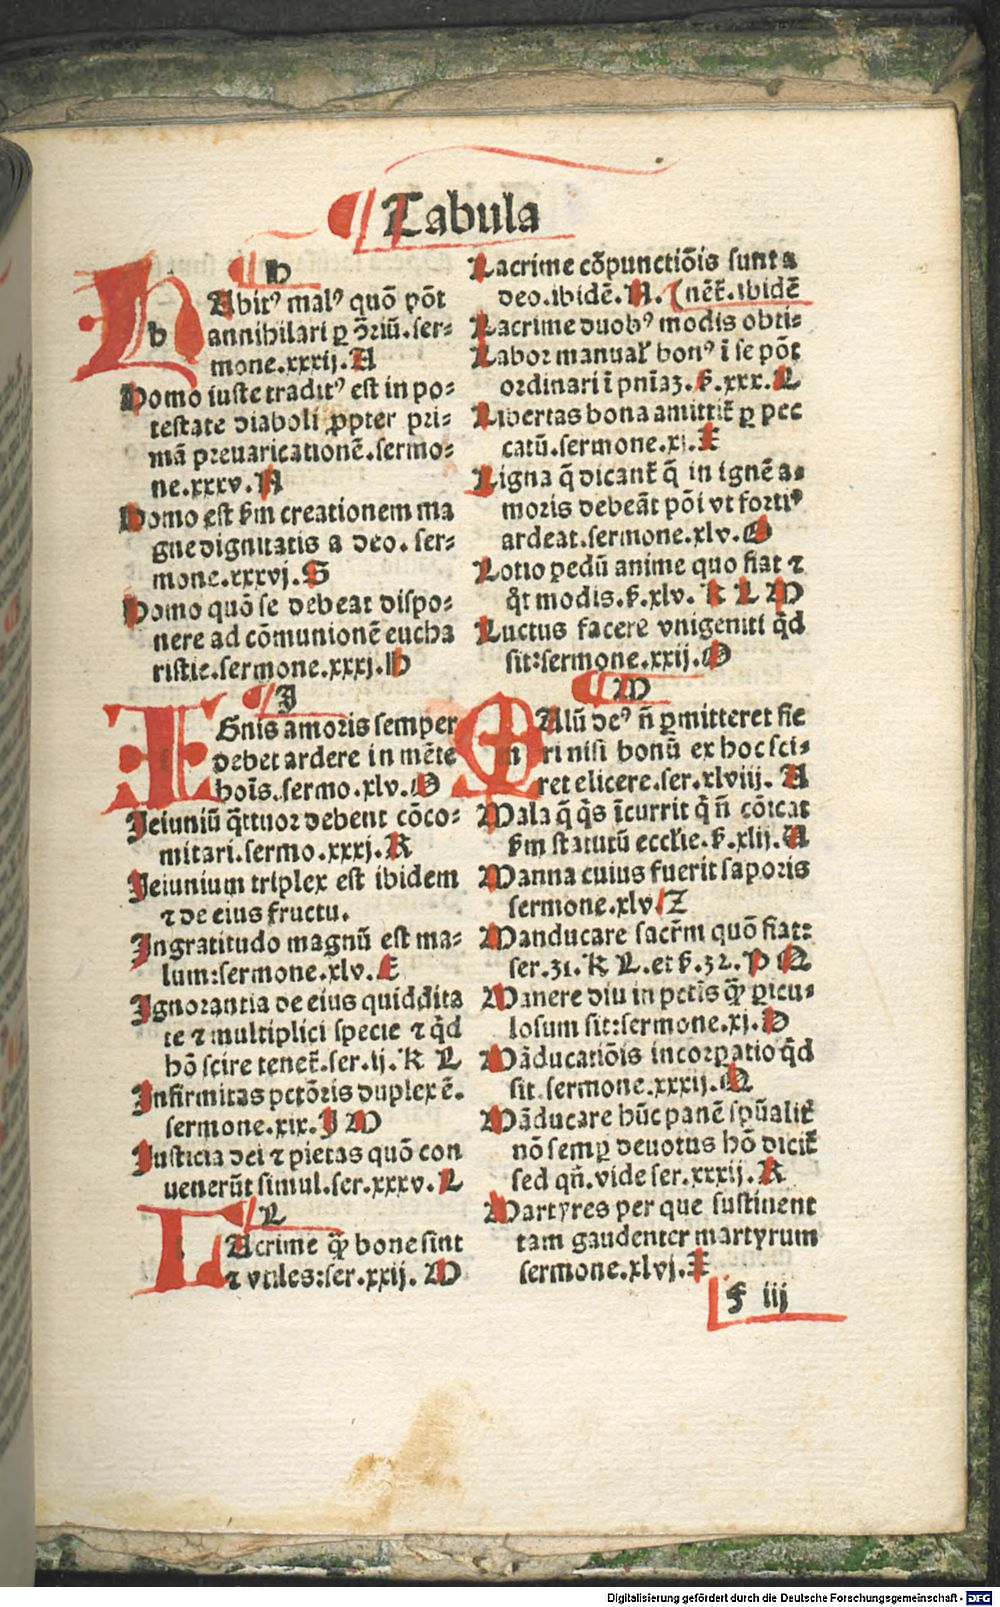 ¶ Tabula
¶ h
HAbitꝰ malꝰ quō pōt
annihilari ꝑ ↄ̄riū. ser⸗
mone.xxxij. A
Homo iuste traditꝰ est in po⸗
testate diaboli ꝓpter pri⸗
mā preuaricationē. sermo⸗
ne.xxxv. N
Homo est ẜm creationem ma
gne dignitatis a deo. ser⸗
mone.xxxvj. S
Homo quō se debeat dispo⸗
nere ad cōmunionē eucha
ristie. sermone.xxxj. H
¶ J
IGnis amoris semper
debet ardere in mēte
hoīs. sermo.xlv. O
Jeiuniū q̄ttuor debent cōco⸗
mitari. sermo.xxxj. R
Jeiunium triplex est ibidem
⁊ de eius fructu.
Ingratitudo magnū est ma⸗
lum: sermone.xlv. E
Ignorantia de eius quiddita
te ⁊ multiplici specie ⁊ q̄d
hō scire tenet̄. ser.ij. K L
Infirmitas pctōris duplex ē.
sermone.xix. J M
Justicia dei ⁊ pietas quō con
uenerūt simul. ser.xxxv. L
¶ L
LAcrime q̄ꝫ bone sint
⁊ vtiles: ser.xxij. M
Lacrime cōpunctiōis sunt a
deo. ibidē. N. (nēt̄. ibidē
Lacrime duobꝰ modis obti⸗
Labor manual̄ bonꝰ ī se pōt
ordinari ī pn̄iaꝫ. ẜ.xxx. L
Libertas bona amittit̄ ꝑ pec
catū. sermone.xj. E
Ligna q̄ dicant̄ q̄ in ignē a⸗
moris debeāt pōi vt fortiꝰ
ardeat. sermone.xlv. O
Lotio pedū anime quo fiat ⁊
q̄t modis. ẜ.xlv. K L M
Luctus facere vnigeniti q̄d
sit: sermone.xxij. O
¶ M
MAlū deꝰ n̄ ꝑmitteret fie
ri nisi bonū ex hoc sci⸗
ret elicere. ser.xlviij. A
Mala q̄ q̄s īcurrit q̄ n̄ cōicat
ẜm statutū eccl̄ie. ẜ.xlij. A
Manna cuius fuerit saporis
sermone.xlv. Z
Manducare sacr̄m quō fiat:
ser.31. K L. et ẜ.32. P Q
Manere diu in pctīs q̄ꝫ ꝑicu⸗
losum sit: sermone.xj. D
Māducatiōis incorꝑatio q̄d
sit. sermone.xxxij. Q
Māducare hūc panē spūalit̄
nō semꝑ deuotus hō dicit̄
sed qn̄. vide ser.xxxij. R
Martyres per que sustinent
tam gaudenter martyrum
sermone.xlvj. E
f iij
Digitalisierung gefördert durch die Deutsche Forschungsgemeinschaft - DFG